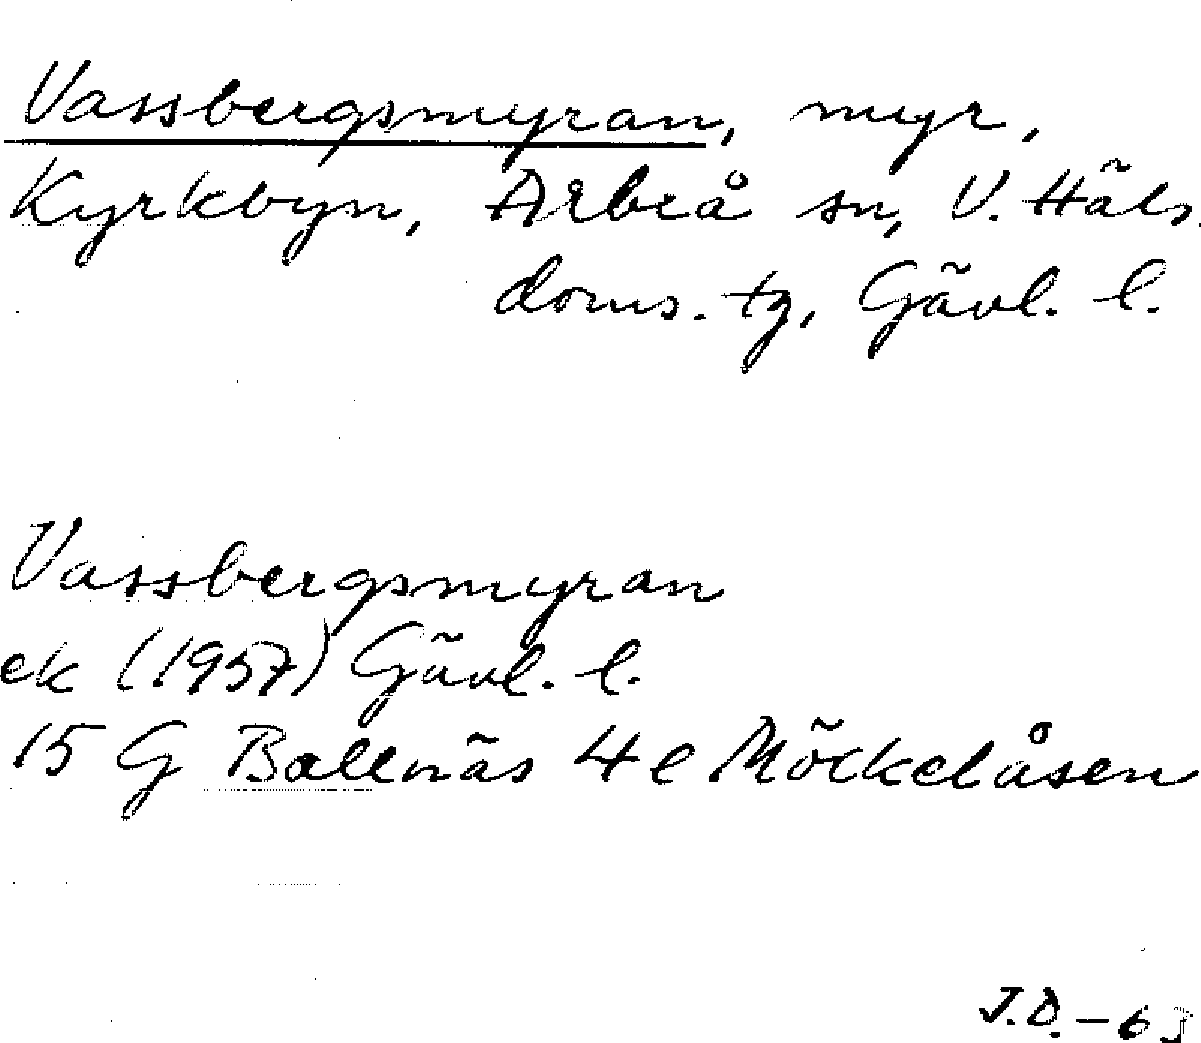 Vassbergsmyran, myr,
Kyrkbyn, Arbrå sn, V. Häls.
doms. tg, Gävl. l.
Vassbergsmyran
ek (1957) Gävl. l.
15 G Bollnäs 4 e Möckelåsen
J.D. - 63